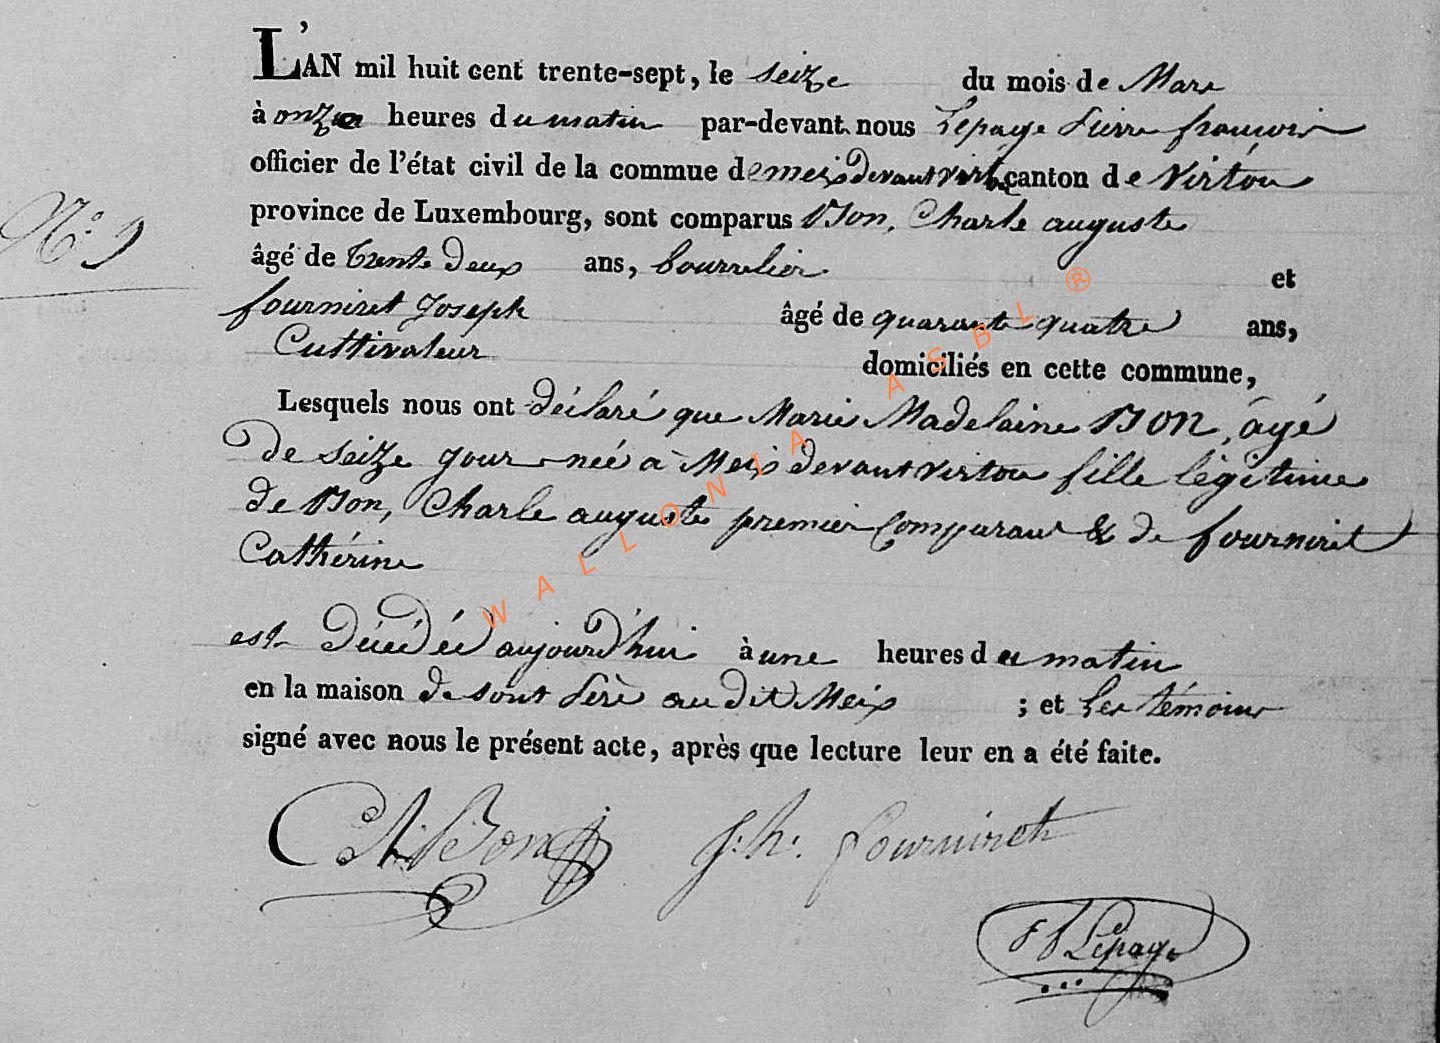 L'AN mil huit cent trente-sept, le seize du mois de Mars
à onze heures du matin par-devant nous Lepage Pierre françois
officier de l'état civil de la commue de meix devant virton canton de Virton
N.° 9
province de Luxembourg, sont comparus Bon, Charle auguste
âgé de trente deux ans, bourrelier et
fourniret Joseph âgé de quarante quatre ans,
Cultivateur domiciliés en cette commune,
Lesquels nous ont déclaré que Marie Madelaine BON, âgé
de seize jour née à Meix devant virton fille légitime
de Bon, Charle auguste premier Comparant & de fourniret
Cathérine
est décédée aujourd'hui à une heures du matin
en la maison de sont père au dit Meix ; et les témoins
signé avec nous le présent acte, après que lecture leur en a été faite.
Bon J.h. fourniret
Lepage
WALLONIA ASBL ®